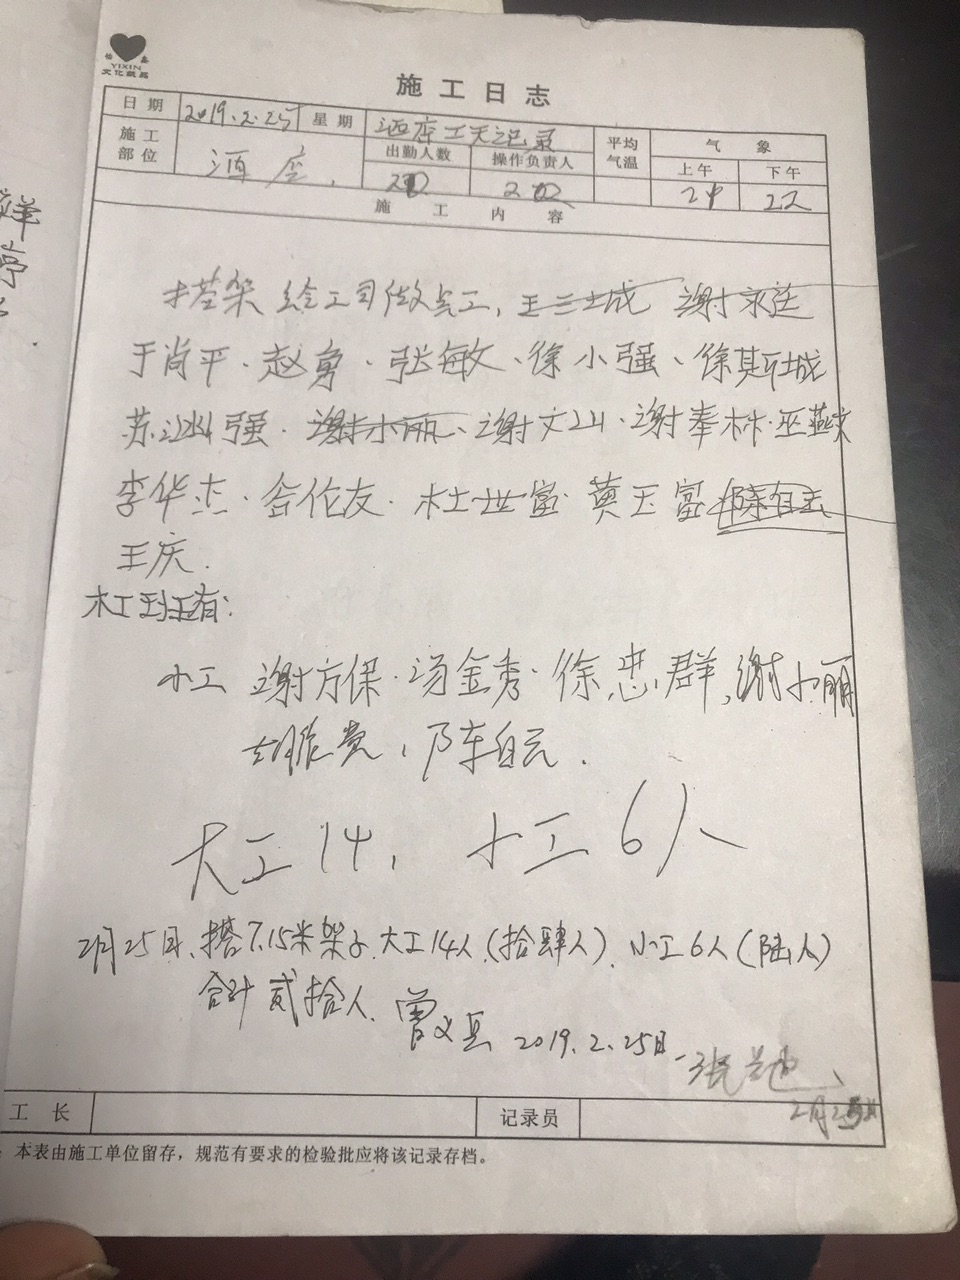 怡鑫
YIXIN
文化纸品
施工日志
日期 2019.2.25 星期 酒库工天记录 平均气温 气象
施工部位 酒库. 出勤人数 操作负责人 上午 下午
施工内容
搭架给公司做点工, 谢永廷
于肖平、赵勇、张敏、徐小强、徐其斯城
强、谢小丽、谢文山、谢奉林、巫燕文
李华杰、伦友、杜世富、莫玉富 陈自云
王庆.
木工班有:
小工 谢方保、汤金秀、徐忠群, 谢小丽
、陈自云.
大工14, 小工6人
2月25日、搭7.15米架子、大工14人(拾肆人)、小工6人(陆人)
合计贰拾人. 曾义兵 2019.2.25日
2月25日
工长 记录员
本表由施工单位留存，规范有要求的检验批应将该记录存档。